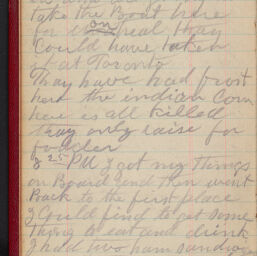 take the Boat here
for on real thay
Could have taken
it at Toronto
Thay have had frost
here the indian Corn
here is all Killed
thay only raise for
fodder
8 25 PM I got my things
on Board and then went
Back to the first place
I Could find to get Some
Thing to eat and drink
I had two ham sandwige